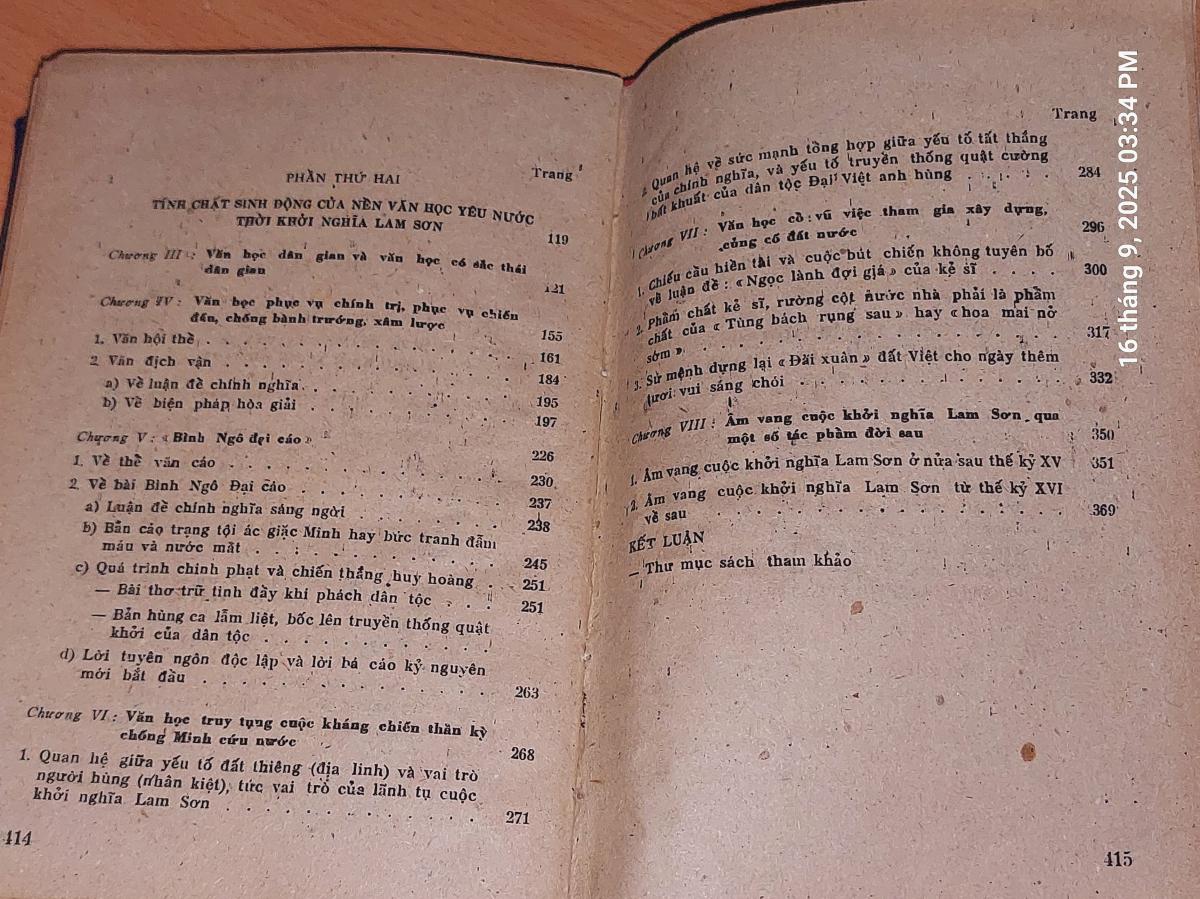 Trang
PHẦN THỨ HAI
TÍNH CHẤT SINH ĐỘNG CỦA NỀN VĂN HỌC YÊU NƯỚC
THỜI KHỞI NGHĨA LAM SƠN
119
Chương III : Văn học dân gian và văn học có sắc thái
dân gian
121
Chương IV : Văn học phục vụ chính trị, phục vụ chiến
đấu, chống bành trướng, xâm lược
155
1. Văn hội thề . . . . . . . . . . 161
2. Văn địch vận . . . . . . . . . . 184
a) Về luận đề chính nghĩa . . . . . . . . . . 195
b) Về biện pháp hòa giải . . . . . . . . . . 197
Chương V : « Bình Ngô đại cáo »
226
1. Về thể văn cáo . . . . . . . . . . 230
2. Về bài Bình Ngô Đại cáo . . . . . . . . . . 237
a) Luận đề chính nghĩa sáng ngời . . . . . . . . . . 238
b) Bản cáo trạng tội ác giặc Minh hay bức tranh đẫm
máu và nước mắt . . . . . . . . . . 245
c) Quá trình chinh phạt và chiến thắng huy hoàng . 251
— Bài thơ trữ tình đầy khí phách dân tộc . . . 251
— Bản hùng ca lẫm liệt, bốc lên truyền thống quật
khởi của dân tộc . . . . . . . . . .
d) Lời tuyên ngôn độc lập và lời bá cáo kỷ nguyên
mới bắt đầu . . . . . . . . . . 263
Chương VI : Văn học truy tụng cuộc kháng chiến thần kỳ
chống Minh cứu nước
268
1. Quan hệ giữa yếu tố đất thiêng (địa linh) và vai trò
người hùng (nhân kiệt), tức vai trò của lãnh tụ cuộc
khởi nghĩa Lam Sơn . . . . . . . . . . 271
414
Trang
2. Quan hệ về sức mạnh tổng hợp giữa yếu tố tất thắng
của chính nghĩa, và yếu tố truyền thống quật cường
bất khuất của dân tộc Đại Việt anh hùng . . . . 284
Chương VII : Văn học cổ vũ việc tham gia xây dựng,
củng cố đất nước
296
1. Chiếu cầu hiền tài và cuộc bút chiến không tuyên bố
về luận đề : « Ngọc lành đợi giá » của kẻ sĩ . . . . 300
2. Phẩm chất kẻ sĩ, rường cột nước nhà phải là phẩm
chất của « Tùng bách rụng sau » hay « hoa mai nở
sớm » . . . . . . . . . . 317
3. Sứ mệnh dựng lại « Đài xuân » đất Việt cho ngày thêm
tươi vui sáng chói . . . . . . . . . . 332
Chương VIII : Âm vang cuộc khởi nghĩa Lam Sơn qua
một số tác phẩm đời sau
350
1. Âm vang cuộc khởi nghĩa Lam Sơn ở nửa sau thế kỷ XV 351
2. Âm vang cuộc khởi nghĩa Lam Sơn từ thế kỷ XVI
về sau . . . . . . . . . . 369
KẾT LUẬN
— Thư mục sách tham khảo
415
16 tháng 9, 2025 03:34 PM